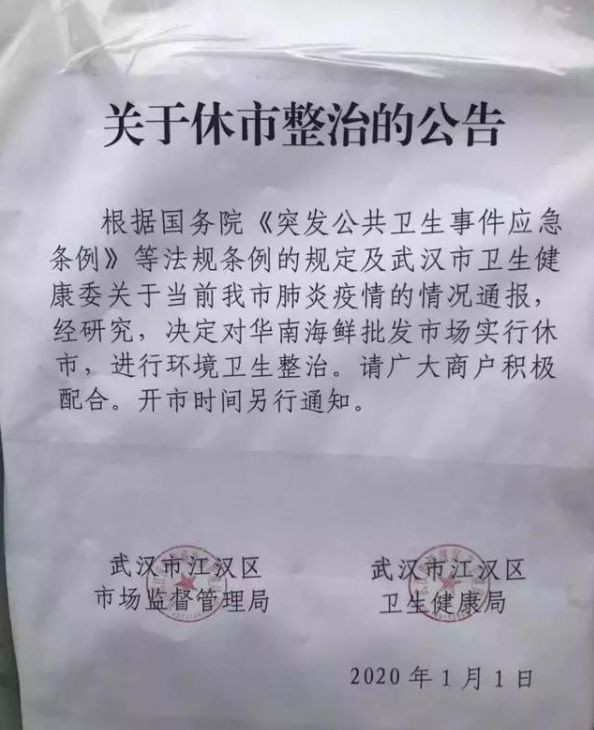 关于休市整治的公告
根据国务院《突发公共卫生事件应急
条例》等法规条例的规定及武汉市卫生健
康委关于当前我市肺炎疫情的情况通报，
经研究，决定对华南海鲜批发市场实行休
市，进行环境卫生整治。请广大商户积极
配合。开市时间另行通知。
武汉市江汉区
市场监督管理局
武汉市江汉区
卫生健康局
2020年1月1日